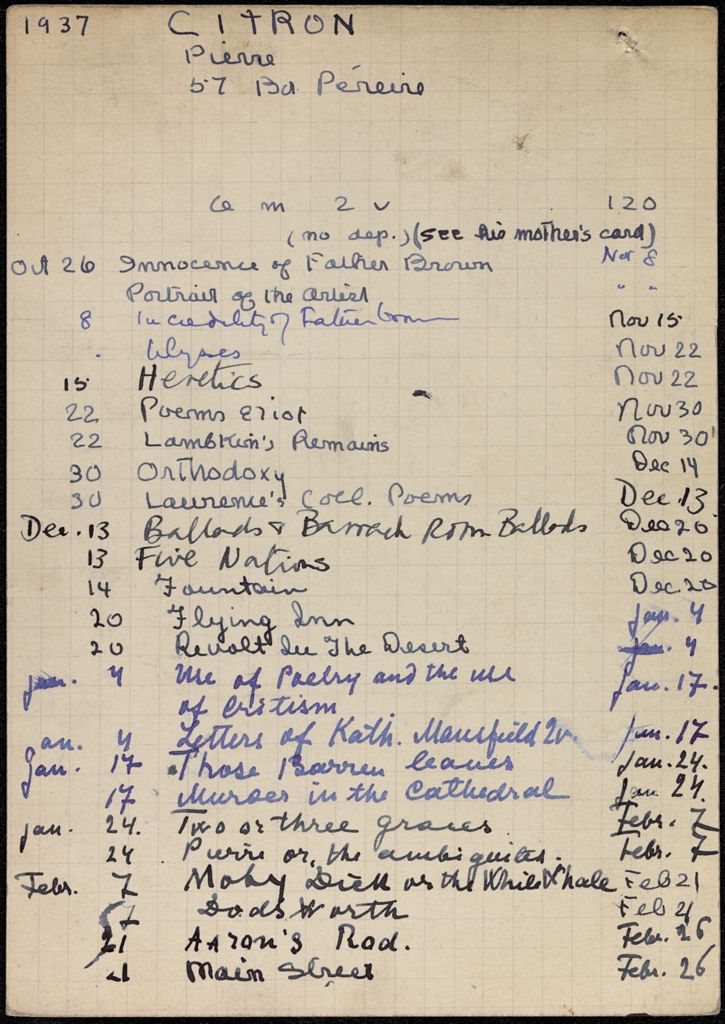 1937 CITRON
Pierre
57 Bd Péreire
6 m 2 v 120
(no dep.) (see his mother's card)
Oct 26 Innocence of Father Brown Nov 8
Portrait of the Artist " "
8 Incredulity of Father Brown Nov 15
. Ulysses Nov 22
15 Heretics Nov 22
22 Poems Eliot Nov 30
22 Lambkin's Remains Nov 30
30 Orthodoxy Dec 14
30 Lawrence's Coll. Poems Dec. 13
Dec. 13 Ballads & Barrack Room Ballads Dec 20
13 Five Nations Dec 20
14 Fountain Dec. 20
20 Flying Inn Jan. 4
20 Revolt In The Desert Jan. 4
Jan. 4 Use of Poetry and the use Jan. 17.
of Critism
Jan. 4 Letters of Kath. Mansfield 2v. Jan. 17
Jan. 17 Those Barren leaves Jan. 24.
17 Murder in the Cathedral Jan 24.
Jan. 24. Two or three graces Febr. 7
24 Pierre or, the ambiguites. Febr. 7
Febr. 7 Moby Dick or the White Whale Feb 21
7 Dodsworth Feb 21
21 Aaron's Rod. Febr. 26
21 Main Street Febr. 26